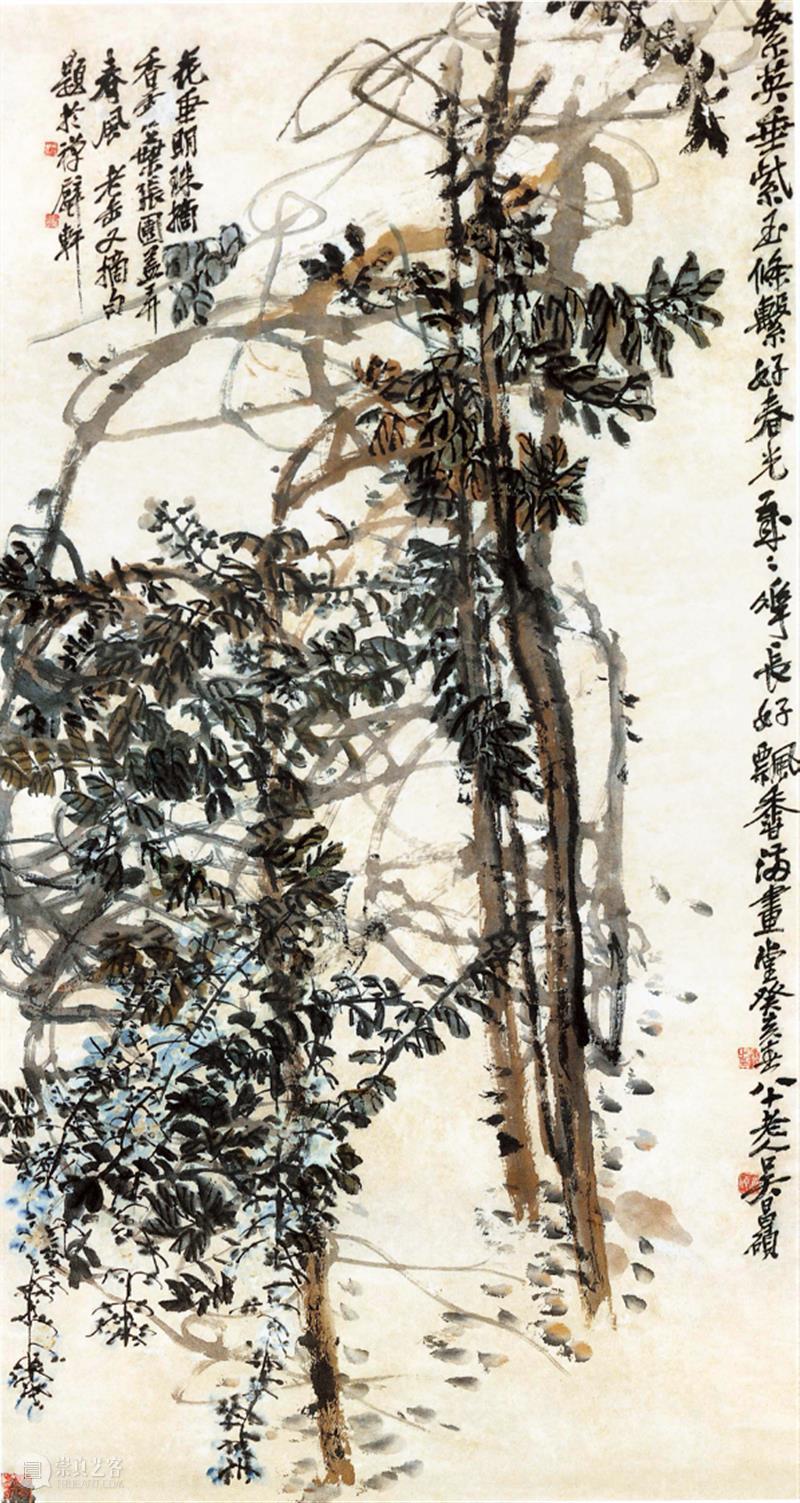 繁英垂紫玉條繫好春光歲〻華長好飄香滿畫堂癸亥春八十老人吳昌碩
花垂明珠滴
香葉張圓蓋弄
春風 老缶又摘句
題於禪甓軒
崇真艺客
TRUEART.COM